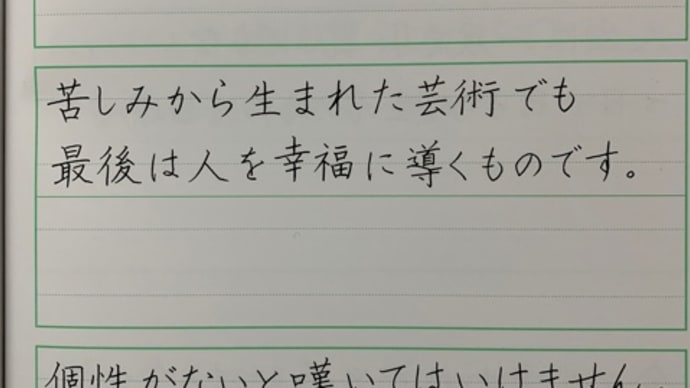 苦しみから生まれた芸術でも
最後は人を幸福に導くものです。
個性がないと嘆いてはいけません。